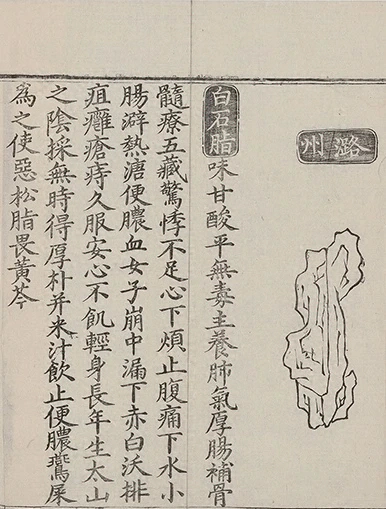 潞州
白石脂味甘酸平無毒主養肺氣厚腸補骨
髓療五藏驚悸不足心下煩止腹痛下水小
腸澼熱溏便膿血女子崩中漏下赤白沃排
疽癰瘡痔久服安心不飢輕身長年生太山
之陰採無時得厚朴并米汁飲止便膿鷰屎
為之使惡松脂畏黃芩